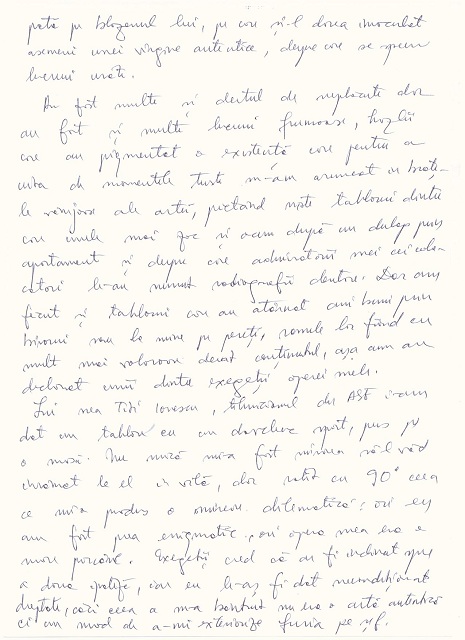 pata pe blazonul lui, pe care și-l dorea imaculat
asemeni unei virgine autentice, despre care se spun
lucruri urâte.
Au fost multe și destul de neplăcute dar
au fost și multe lucruri frumoase, hazlii
care au pigmentat o existență care pentru a
uita de momentele triste m-am aruncat în brațe-
le vânjoase ale artei, pictând niște tablouri dintre
care unele mai zac și acum după un dulap prin
apartament și despre care admiratorii mei
le-au numit radiografii dentare. Dar am
făcut și tablouri care au atârnat ani buni prin
birouri sau la mine pe pereți, ramele lor fiind cu
mult mai valoroase decât conținutul, așa cum au
declarat unii dintre exegeții operei mele.
Lui nea Titi Iovescu, din ASE i-am
dat un tablou cu un dovleac spart, pus pe
o masă. Nu mică mi-a fost mirarea să-l văd
înrămat la el în vilă, dar rotit cu 90° ceea
ce mi-a produs o oarecare dilematică: ori eu
am fost prea enigmatic, ori opera mea era o
mare porcărie. Exegeții cred că ar fi înclinat spre
a doua ipoteză, iar eu le-aș fi dat necondiționat
dreptate, căci ceea a m-a bântuit nu era o artă autentică
ci un mod de a-mi exterioriza furia pe șef.